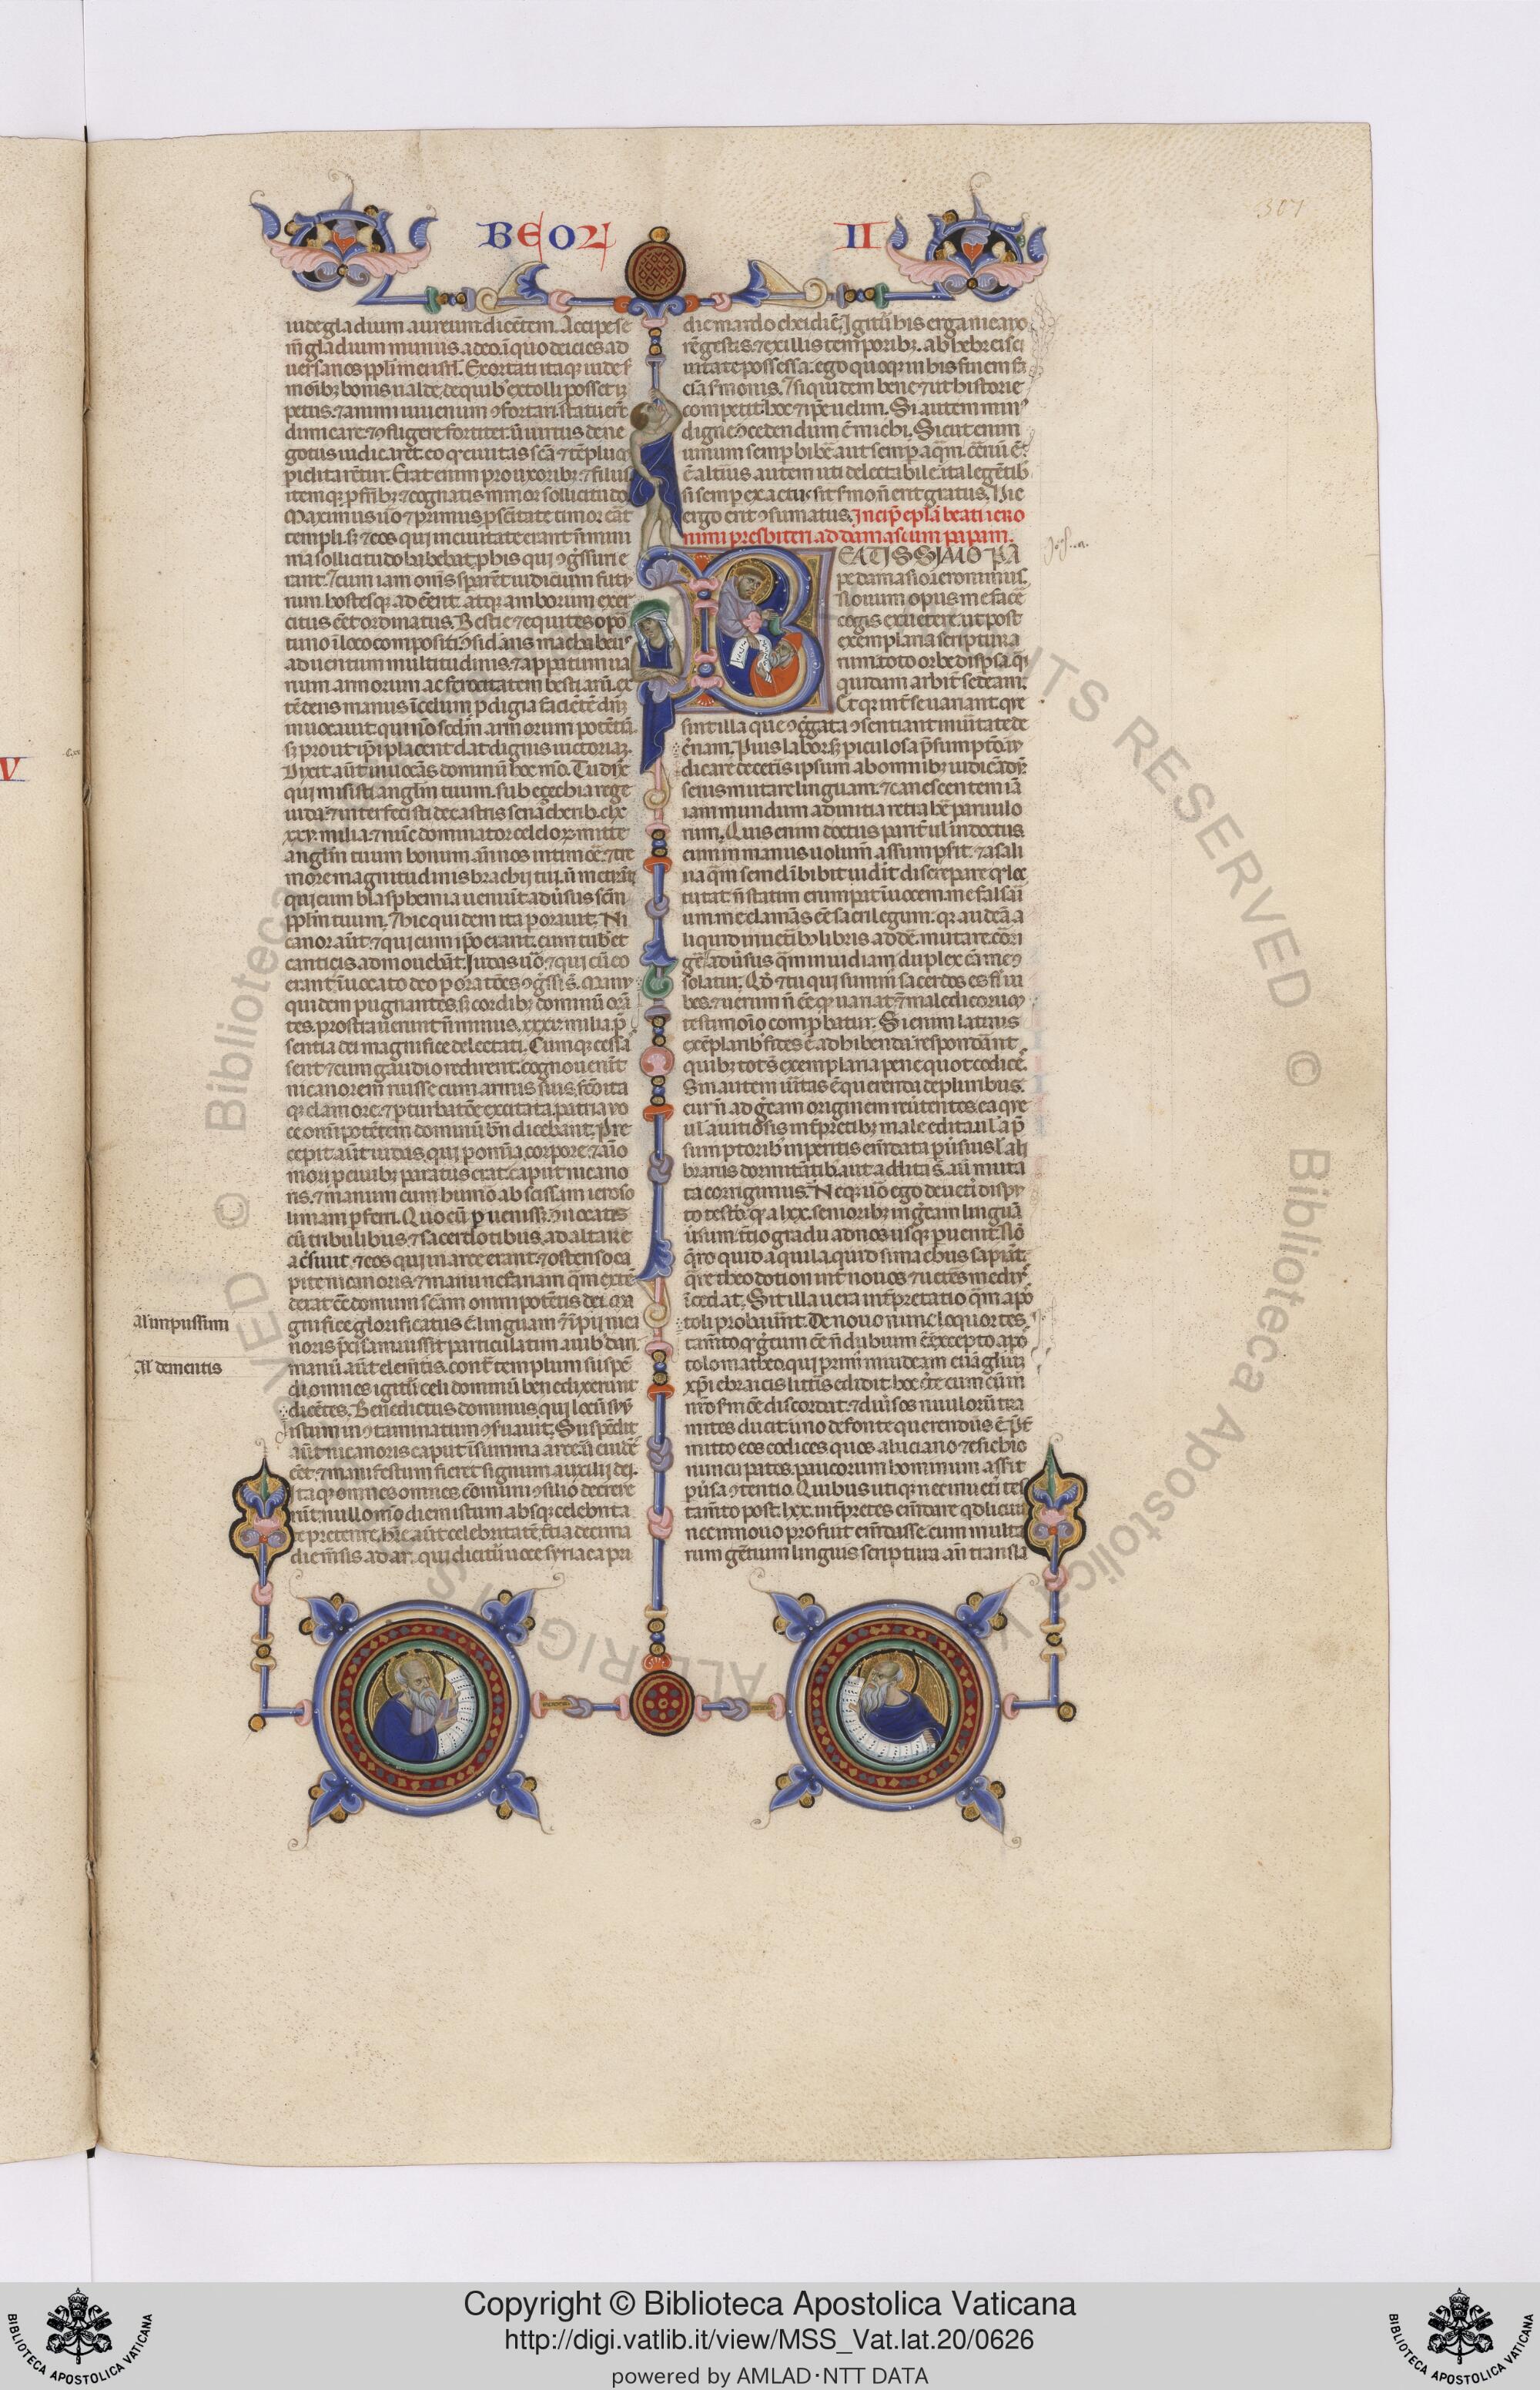 BEOR II
307
iude gladium aureum dicētem. Accipe sc̄
m̄ gladium munus a deo. ī quo deicies ad
uersarios pplī mei isrl̄. Exortati itaqꝫ iude s̾
monibꝫ bonis ualde. de quibꝰ extolli posset ī
petus. ⁊ animi iuuenum ꝯfortari. statuer̄t
dimicare ⁊ ꝯfligere fortiter. ū uirtus de ne
gotiis iudicaret. eo qꝫ ciuitas sc̄a ⁊ tēplum
piclitarētur. Erat enim pro uxoribꝫ ⁊ filiis
itemqꝫ ꝓ fr̄ibꝫ ⁊ cognatis minor sollicitudo
Maximus ū̄o ⁊ primus ꝓ sc̄itate timor erāt
templi. sꝫ ⁊ eos qui in ciuitate erant n̄ mini
ma sollicitudo habebat. ꝓ his qui ꝯgressuri e
rant. ⁊ cum iam om̄s sparēt iudicium futu
rum. hostesqꝫ adēent. atqꝫ
citus ēet ordinatus. Bestie ⁊ equites oportu
tuno ī loco compositi. ꝯsidānſ machabeus
aduentum multitudinis. ⁊ apparatum ua
rium armorum. ac ferocitatem bestiarū. ex
tēdens manus ī celum. ꝓdigia faciētē dn̄m
inuocauit. qui nō secdm̄ armorum potētiā.
sꝫ prout ip̄i placent dat dignis uictoriaꝫ.
Dixit aūt inuocās dominū hoc mō. Tu dn̄e
qui misisti anglm̄ tuum. sub eçechia rege
iuda. ⁊ interfecisti de castris senacherib. clx
xxv. milia. ⁊ nūc dominator celeloꝝ mitte
anglm̄ tuum bonum an̄ nos in timore ⁊ tre
more magnitudinis brachij tui. ū metuāt
qui cum blasphemia ueniūt aduersus scm̄
pplm̄ tuum. ⁊ hic quidem ita perorauit. Ni
canor aūt ⁊ qui cum ip̄o erant. cum tubis ⁊
canticis admouebāt. Iudas ū̄o ⁊ qui cū eo
erant. īuocato deo ꝑ oratōes ꝯgressi sūt. Manu
quidem pugnantes. sꝫ cordibꝫ dominū orā
tes. prostrauerunt n̄ minus. xxxv. milia. p̄
sentia dei magnifice delectati. Cumqꝫ cessa
sent ⁊ cum gaudio redirent. cognouerūt
nicanorem ruisse cum armis suis. fc̄o ita
qꝫ clamore. ⁊ ꝑturbatōe excitata. patria uo
ce om̄ipotētem dominū bn̄dicebant. Pre
cepit aūt iudas. qui ꝑ omnia corpore ⁊ aīo
mori ꝓ ciuibꝫ paratus erat. caput nicano
ris. ⁊ manum cum humero abscissam ieroso
limam ꝑferri. Quo cū peruenissꝫ. ꝯuocatis
cōtribulibus ⁊ sacerdotibus. ad altare
acersiuit. ⁊ eos qui in arce erant. ⁊ ostenso ca
pite nicanoris. ⁊ manu nefaria. qm̄ exten
derat ꝯtra domum sc̄am omnipotētis dei. Ma
gnifice glorificatus ē. linguam ⁊ ī̄pij nica
noris precisam iussit particulatim auibꝰ dari.
manū aūt dementis. contra templum suspē
di. omnes igitur celi dominū benedixerunt
dicētes. Benedictus dominus. qui locū suū
istum incontaminatum ꝯseruauit. Suspēdit
aūt nicanoris caput ī summa arce. ū euidēs
ēet ⁊ manifestum fieret signum auxilij dei.
Itaqꝫ omnes omnes cōmuni ꝯsilio decreue
rūt. nullo modo diem istum absqꝫ celebrita
te preterire. hr̄e aūt celebritatē. tertia decima
die mēsis adar. qui dicitur uoce syriaca pri
al' impussium
Al' dementis
die mardochei diē. Igitur his erga nicano
rē gestis. ⁊ ex illis temporibꝫ. ab hebreis ci
uitate possessa. ego quoqꝫ in his finem fa
ciā sermonis. ⁊ siquidem bene ⁊ ut historie
competit. hoc ⁊ ipse uelim. Si autem minꝰ
digne ꝯcedendum ē michi. Sicut enim
uinum semꝑ bibere aut semꝑ aquam. ꝯtrariū ē.
ē alternis autem uti delectabile. ita legētibꝰ
si semꝑ exactus sit sermo n̄ erit gratus. Hic
ergo erit ꝯsumatus. Incip̄ epl̄a beati iero
nimi presbiteri ad damascum papam.
BEATISSIMO PA
pe damasio ieronimus.
Nouum opus me facē
cogis ex ueteri. ut post
exemplaria scriptura
rum toto orbe dispsa. qsi
quidam arbiter sedeam.
Et qꝫ inter se uariant. que
sint illa que ꝯgrecata ꝯsentiant in ueritate de
cernam. Pius labor. sꝫ periculosa presumptio. iu
dicare de ceteris ipsum ab omnibꝫ iudicandū.
senis mutare linguam. ⁊ canescentem iā
iam mundum ad initia retrahere paruulo
rum. Quis enim doctus pariter ul' indoctus.
cum in manus uolumen assumpserit. ⁊ a sali
ua qm̄ semel bibit. uiderit discrepare qꝫ lec
titat. n̄ statim erumpat ī uocem. me falsari
um me clamās ēe sacrilegum. qꝫ audeā a
liquid in ueteribꝫ libris addere. mutare. corri
gere. aduersus quam inuidiam. duplex cā me ꝯ
solatur. Qꝫ ⁊ tu qui summus sacerdos es. fieri iu
bes. ⁊ uerum n̄ ēe qꝫ uariat. etiā maledicorum
testimonio comprobatur. Si enim latinis
exēplaribꝰ fides ē adhibenda. respondeant
quibꝫ. tot sūt exemplaria pene quot codices.
Sin autem ueritas ē querenda de pluribus.
cur n̄ ad grecam originem reuertentes. ea que
ul' a uitiosis interpretibꝫ male edita. ul' a pre
sumptoribꝰ imperitis emendata peruersius. ul' a li
brariis dormitātibꝰ. aut addita sūt. aut muta
ta corrigimus. Neqꝫ ū̄o ego de ueteri dispu
to testo. qꝫ a lxx. senioribꝫ in grecam linguā
uersum. tertio gradu ad nos usqꝫ peruenit. Nō
quero quid aquila. quid simachus sapiāt.
quare theodotion inter nouos ⁊ ueteres medius
īcedat. Sit illa uera interpretatio quam apo
toli probauerūt. De nouo nunc loquor tes
tamento. qꝫ grecum ēe n̄ dubium ē. excepto apo
tolo matheo. qui primus in iudeam euāgelium
xp̄i ebraicis litteris edidit. hoc certe cum cūm
nostro sermone discordat. ⁊ diuersos riuulorū tra
mites ducit. uno de fonte querendūs ē. preter
mitto eos codices. quos a luciano ⁊ esichio
nuncupatos. paucorum hominum asserit
peruersa ꝯtentio. Quibus utiqꝫ nec in ueteri tes
tamento post lxx. interpretes emendare qd licuit
nec in nouo profuit emendasse. cum multa
rum gentium linguis scriptura ante transla
BIBLIOTECA APOSTOLICA VATICANA
Copyright © Biblioteca Apostolica Vaticana
http://digi.vatlib.it/view/MSS_Vat.lat.20/0626
powered by AMLAD·NTT DATA
BIBLIOTECA APOSTOLICA VATICANA